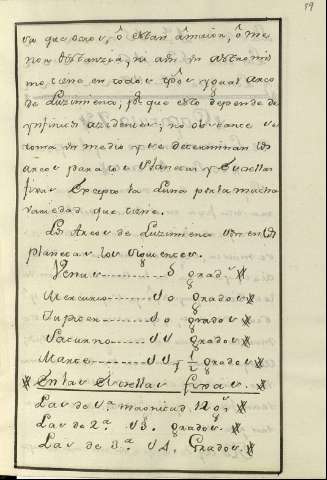 19
va que otros, ô estan â maior, ô me
nor distanzia, ni aun un astro mis
mo tiene en todos tpõs ygual arco
de Luzimento, pr. que esto depende de
ynfinitos azidentes; no obstante se
toma un medio y se determinan los
arcos para los Planetas y Estrellas
fixas Excepto la Luna por la mucha
variedad que tiene.
Los Arcos de Luzimiento son en los
planetas los siguientes.
Venus 5 grads.
Mercurio 10 grados
Jupiter 10 grados
Saturno 11 grados
Marte 11 y 1/2 grados
En las Estrellas fixas.
Las de 1.ª magnitud 12 gs.
Las de 2.ª 13. grados.
Las de 3.ª 14. Grados.